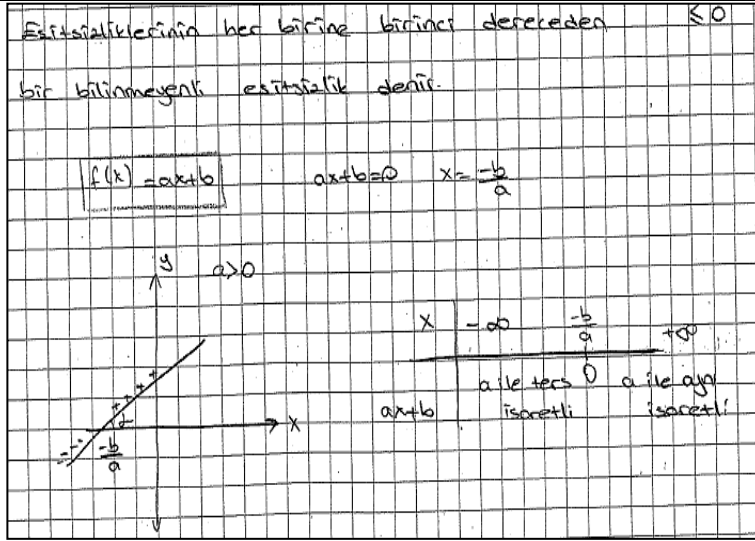 Esitsizliklerinin her birine birinci dereceden ≤0
bir bilinmeyenli esitsizlik denir.
f(x) = ax+b ax+b=0 x = -b/a
y a>0
x -∞ -b/a +∞
ax+b a ile ters işaretli 0 a ile aynı işaretli
+ + + +
α x
- - - -b/a